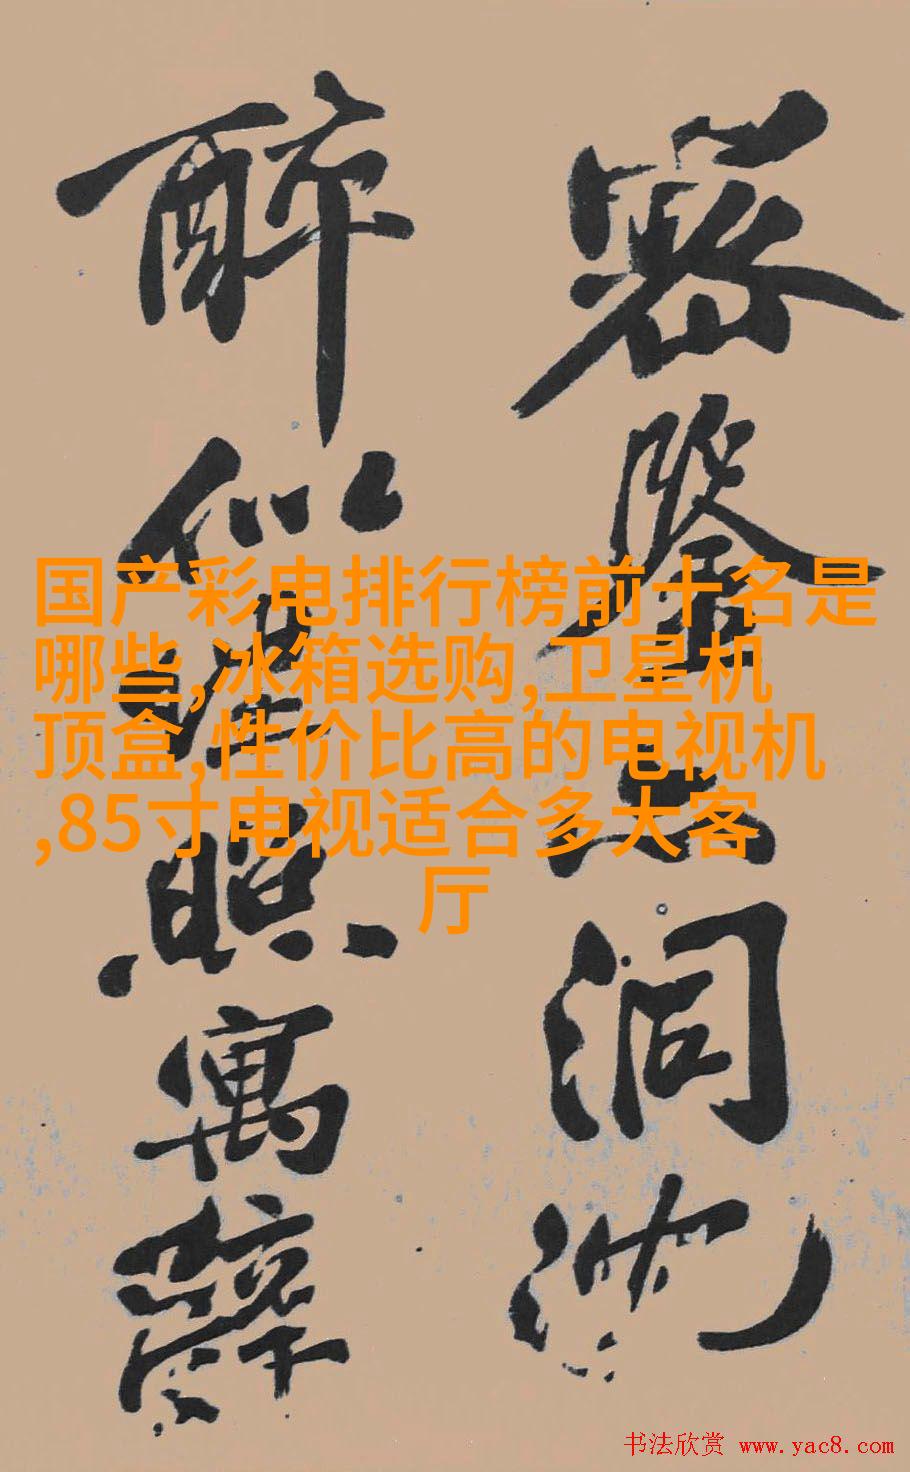 密鑒洞
醉照寓
国产彩电排行榜前十名是
哪些,冰箱选购,卫星机
顶盒,性价比高的电视机
,85寸电视适合多大客
厅
书法欣赏 www.yac8.com